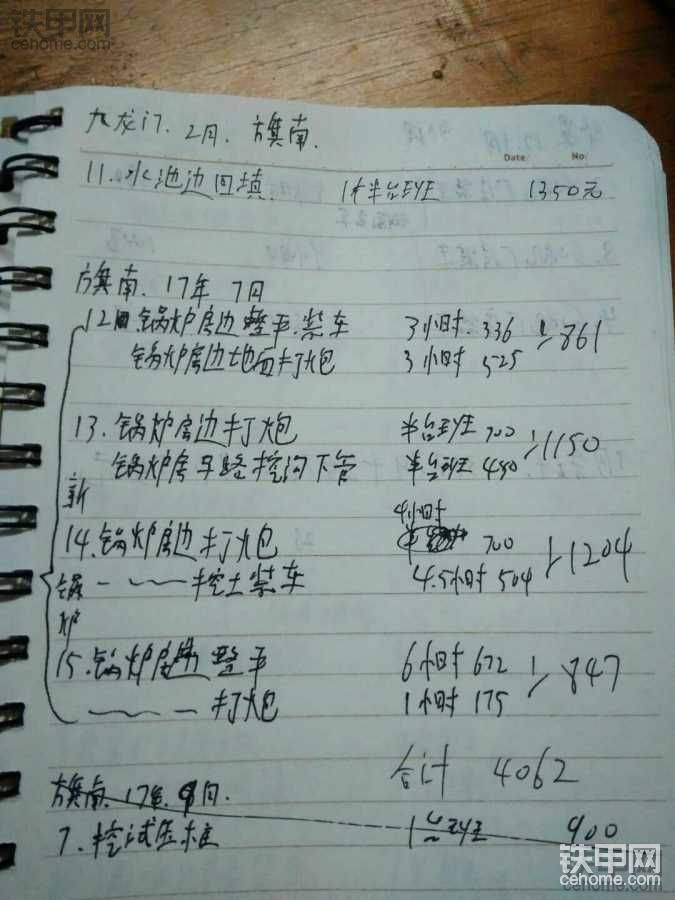 铁甲网
cehome.com
九龙门. 2月. 方冀南.
Date: No:
11. 水池边回填. 1个半台班 1350元
方冀南. 17年 7月
12日 锅炉房边整平. 装车 3小时. 336
锅炉房边地面打炮 3小时 525
861
13. 锅炉房边打炮 半台班 700
锅炉房马路挖沟下管 半台班 450
1150
新锅炉
4小时
14. 锅炉房边打炮 700
挖土装车 4.5小时 504
1204
15. 锅炉房边整平 6小时 672
打炮 1小时 175
847
合计 4062
方冀南. 17年. 9月.
7. 挖试压桩 1台班 900
铁甲网
cehome.com